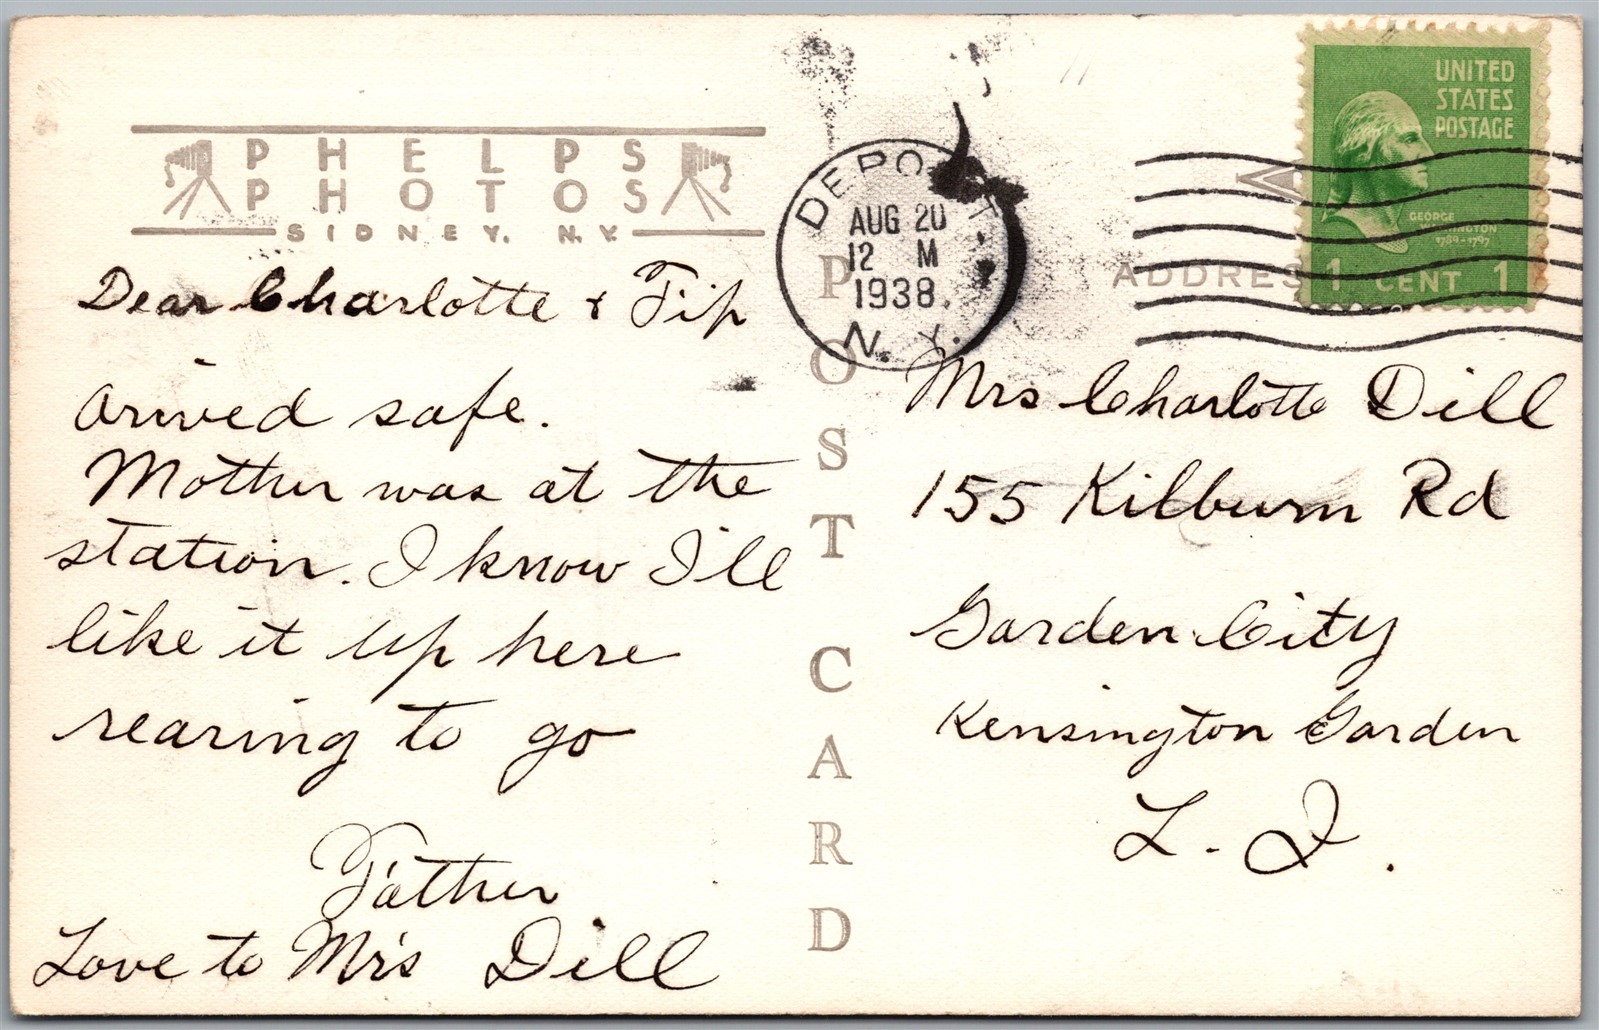 PHELPS
PHOTOS
SIDNEY, N.Y.
Dear Charlotte & Tip
arived safe.
Mother was at the
station. I know I'll
like it up here
rearing to go
Father
Love to Mrs Dill
POST CARD
DEPOSIT
AUG 20
12 M
1938.
N. Y.
UNITED
STATES
POSTAGE
GEORGE
WASHINGTON
1789-1797
1 CENT 1
ADDRES
Mrs Charlotte Dill
155 Kilburn Rd
Garden City
Kensington Garden
L. I.